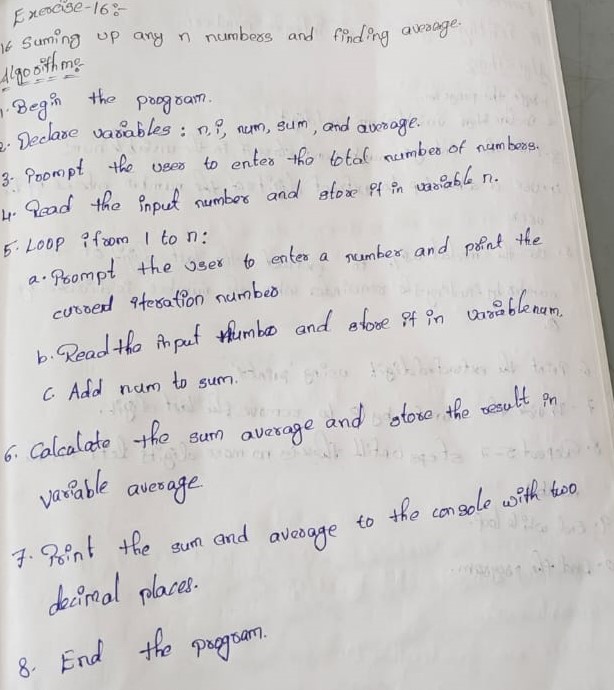 Exercise-16:-
16 Suming up any n numbers and finding average.
Algorithm:
1. Begin the program.
2. Declare variables : n, i, num, sum, and average.
3. Prompt the user to enter the total number of numbers.
4. Read the input number and store it in variable n.
5. Loop i from 1 to n:
a. Prompt the user to enter a number and print the
current iteration number
b. Read the input number and store it in variable num.
c. Add num to sum.
6. Calculate the sum average and store the result in
variable average
7. Print the sum and average to the console with two
decimal places.
8. End the program.